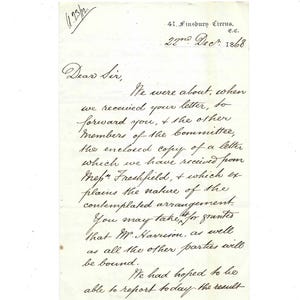 41. Finsbury Circus.
E.C.
22nd Decr. 1868
Dear Sir,
We were about, when
we received your letter, to
forward you, & the other
Members of the Committee,
the enclosed copy of a letter
which we have received from
Messrs Freshfield, & which ex
plains the nature of the
contemplated arrangement.
You may take it for granted
that Mr Harrison, as well
as all the other parties will
be bound.
We had hoped to be
able to report today the result